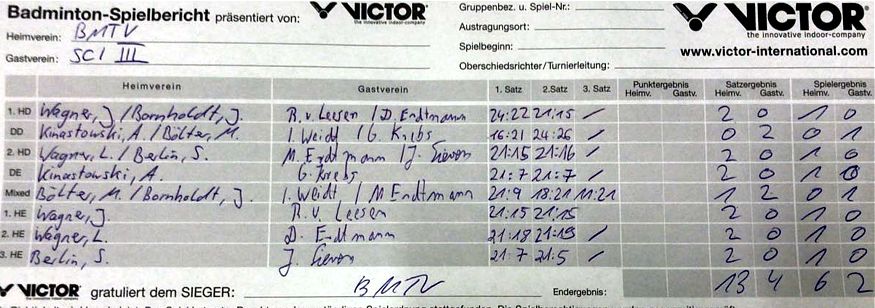 Badminton-Spielbericht präsentiert von: VICTOR the innovative indoor-company
Gruppenbez. u. Spiel-Nr.:
VICTOR the innovative indoor-company
Heimverein: BMTV
Austragungsort:
Gastverein: SCI III
Spielbeginn:
www.victor-international.com
Oberschiedsrichter/Turnierleitung:
Heimverein Gastverein 1. Satz 2.Satz 3. Satz Punktergebnis Heimv. Gastv. Satzergebnis Heimv. Gastv. Spielergebnis Heimv. Gastv.
1. HD Wagner, J. / Bornholdt, J. R. v. Leesen / D. Erdtmann 24:22 21:15 / 2 0 1 0
DD Kinastowski, A. / Bölter, M. I. Weidt / G. Krebs 16:21 24:26 / 0 2 0 1
2. HD Wagner, L. / Berlin, S. M. Erdtmann / J. 21:15 21:16 / 2 0 1 0
DE Kinastowski, A. G. Krebs 21:7 21:7 / 2 0 1 0
Mixed Bölter, M. / Bornholdt, J. I. Weidt / M Erdtmann 21:9 18:21 11:21 1 2 0 1
1. HE Wagner, J. R. v. Leesen 21:15 21:15 / 2 0 1 0
2. HE Wagner, L. D. Erdtmann 21:18 21:19 / 2 0 1 0
3. HE Berlin, S. J. 21:7 21:5 / 2 0 1 0
VICTOR gratuliert dem SIEGER: BMTV Endergebnis: 13 4 6 2